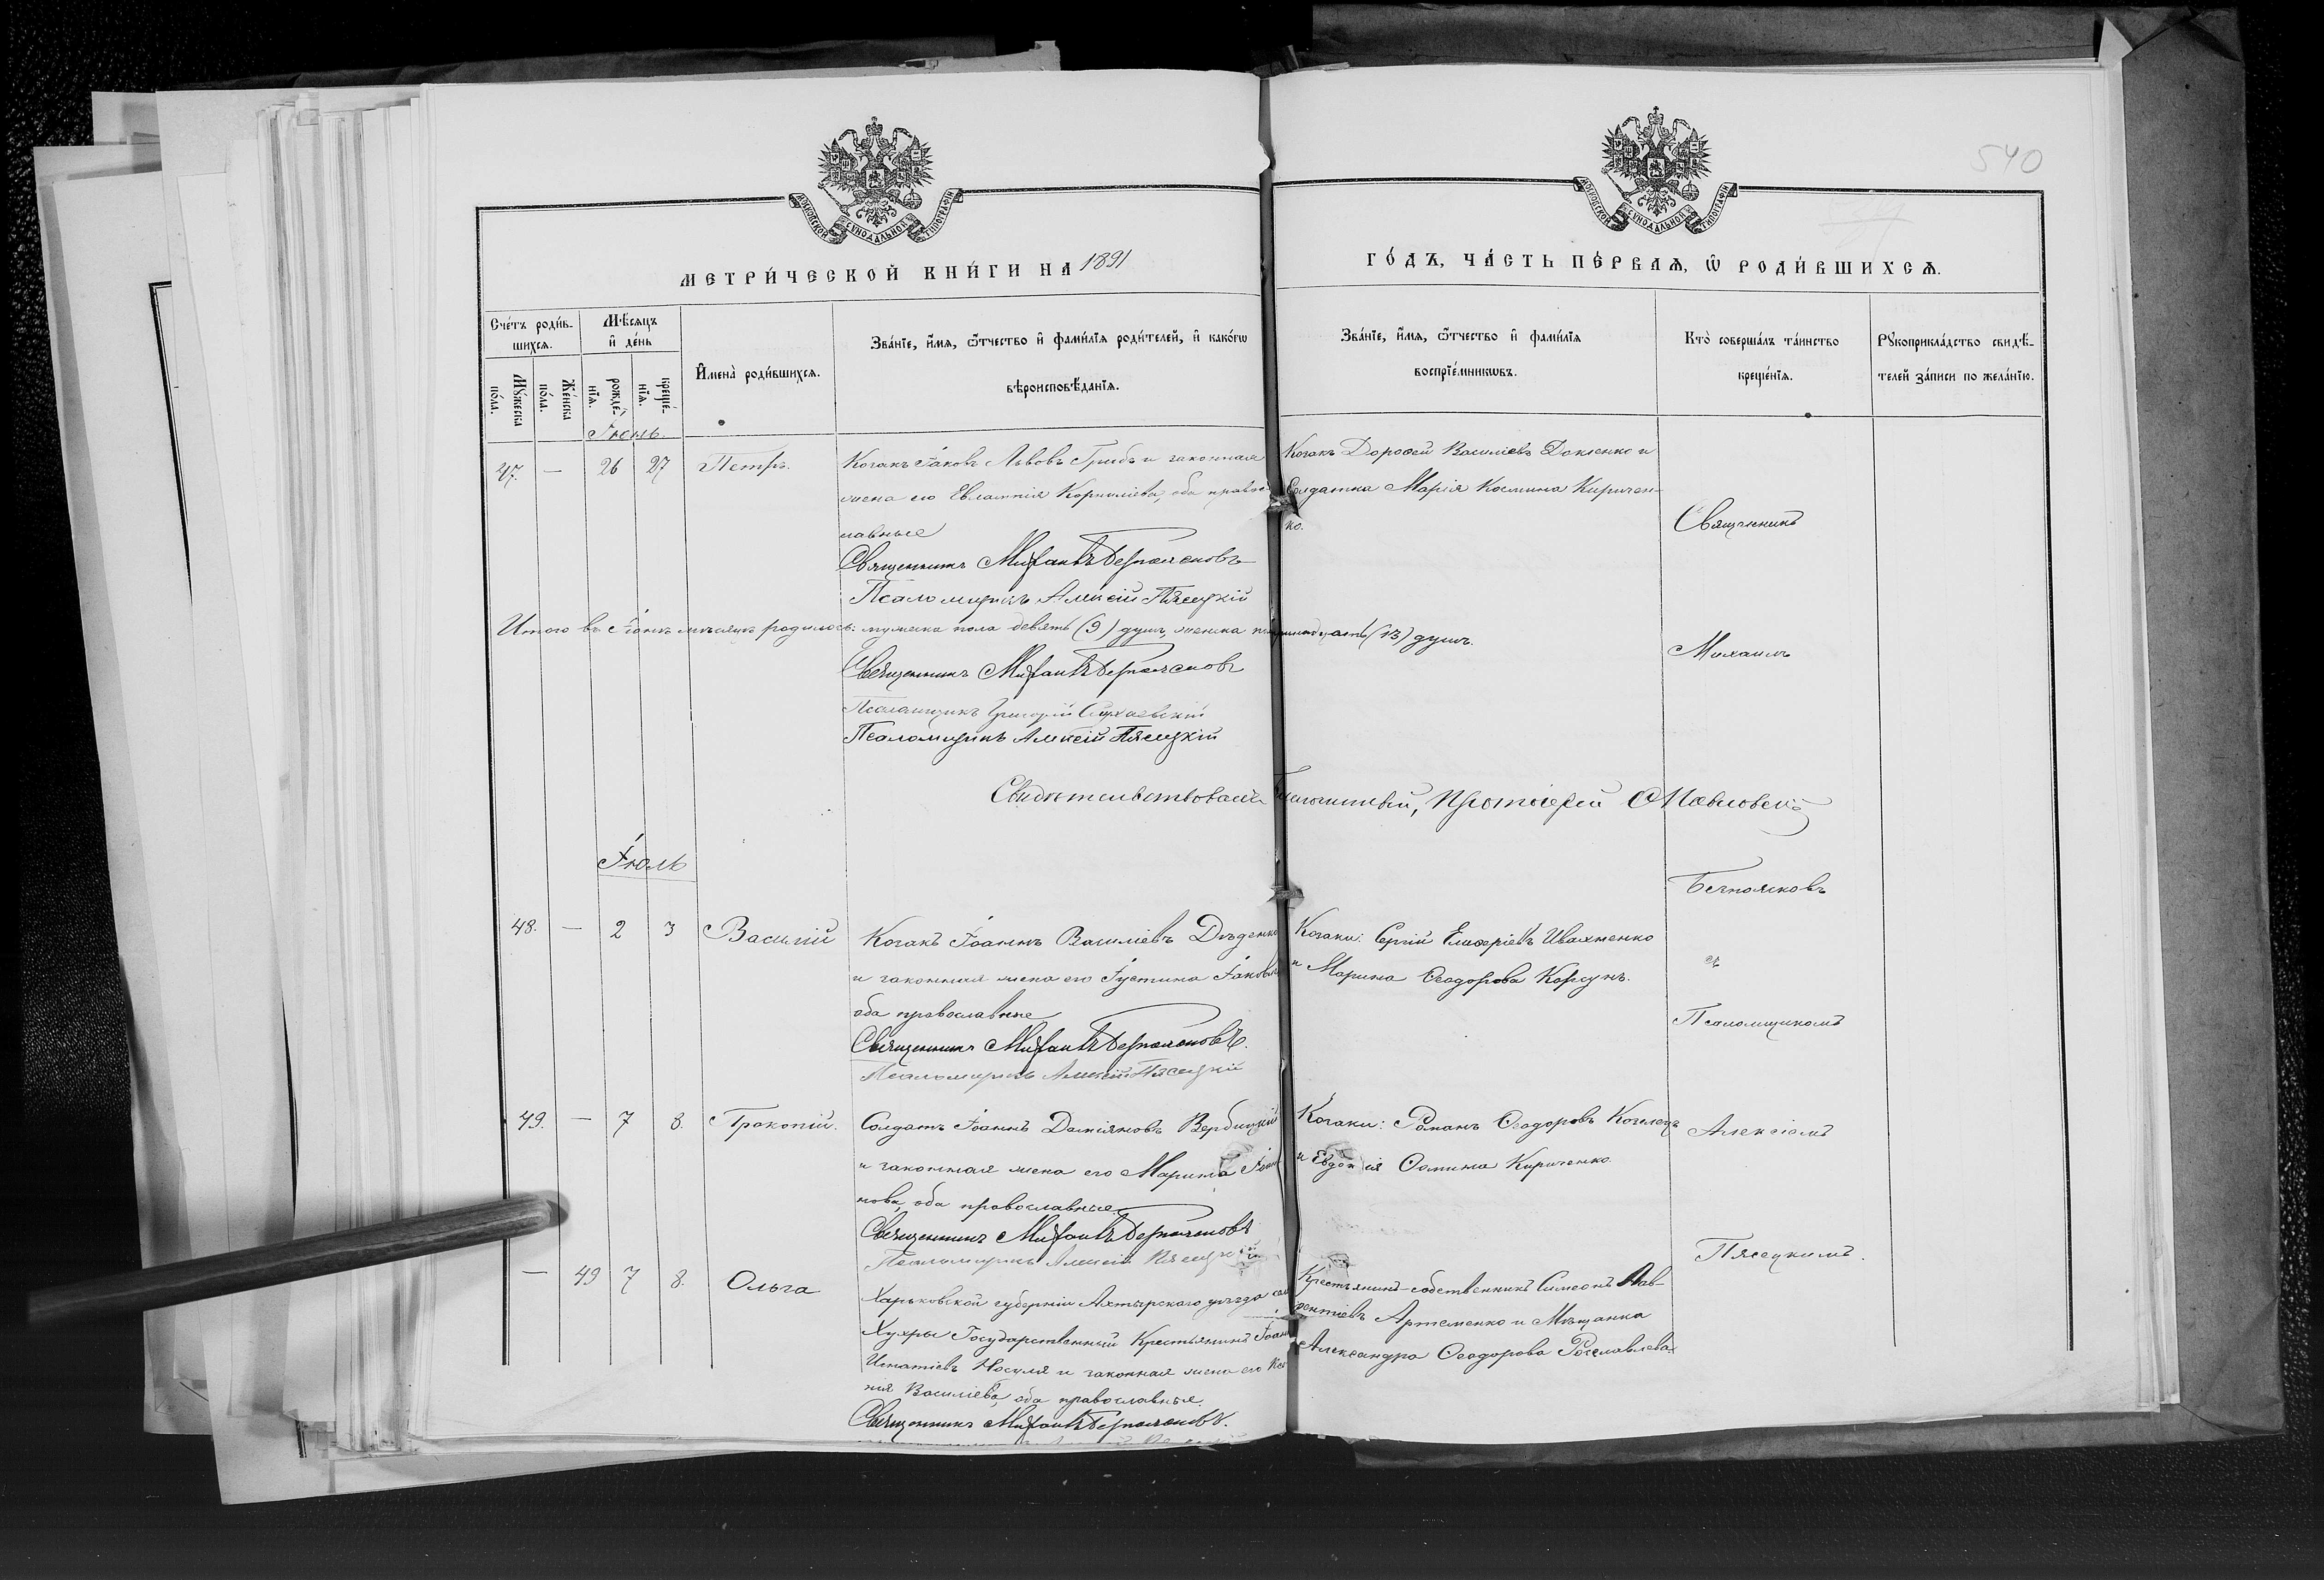 540
МОСКОВСКОЙ СѴНОДАЛЬНОЙ ТИПОГРАФІИ
МОСКОВСКОЙ СѴНОДАЛЬНОЙ ТИПОГРАФІИ
МЕТРИ́ЧЕСКОЙ КНИ́ГИ НА 1891
ГО́ДЪ, ЧА́СТЬ ПЕ́РВАЯ, Ѡ҆ РОДИ́ВШИХСѦ.
Сче́тъ роди́в-
шихсѧ.
Мꙋ́жеска
по́ла.
Же́нска
по́ла.
Мѣ́сѧцъ
и҆ де́нь
рожде́-
нїѧ.
креще́-
нїѧ.
И҆мена̀ роди́вшихсѧ.
Зва́нїе, и҆́мѧ, ѻ҆́тчество и҆ фами́лїѧ роди́телей, и҆ како́гѡ
вѣроисповѣ́данїѧ.
Зва́нїе, и҆́мѧ, ѻ҆́тчество и҆ фами́лїѧ
воспрїе́мникѡвъ.
Кто̀ соверша́лъ та́инство
креще́нїѧ.
Рꙋкоприкла́дство свидѣ́-
телей за́писи по жела́нїю.
Іюнь.
47. — 26 27 Петръ.
Козакъ Іаковъ Львовъ Грибъ и законная
жена его Евлампія Корниліева, оба правос
лавные
Священникъ Михаилъ
Псаломщикъ Алексій Пясецкій
Козакъ Дороѳей Василіевъ и
Солдатка Марія Космина Киричен-
ко.
Итого въ Іюнѣ мѣсяцѣ родилось: мужеска пола девять (9) душъ, женска тринадцать (13) душъ.
Священникъ Михаилъ
Псаломщикъ Григорій
Псаломщикъ Алексій Пясецкій
Свидѣтельствовалъ Благочинный, Протоіерей Павловскій
Іюль
48. — 2 3 Василій
Козакъ Іоаннъ Василіевъ Дѣденко
и законная жена его Іустина Іаковл
оба православные
Священникъ Михаилъ
Псаломщикъ Алексій Пясецкій
Козаки: Сергій Елиѳеріевъ Ивахненко
и Марина Ѳеодорова Корсунъ.
49. — 7 8. Прокопій.
Солдатъ Іоаннъ Даміановъ Вербицкій
и законная жена его Марина Іоан-
нова, оба православные.
Священникъ Михаилъ
Псаломщикъ Алексій Пясецкій
Козаки: Романъ Ѳеодоровъ
и Евдокія Ѳомина Кириченко
— 49 7 8. Ольга
Харьковской губерніи Ахтырскаго уѣзда
Хухры Государственный Крестьянинъ Іоан
Игнатіевъ Носуля и законная жена его Ксе
нія Василіева, оба православные.
Священникъ Михаилъ
Крестьянинъ-собственникъ Симеонъ Лав-
рентіевъ Артеменко и Мѣщанка
Александра Ѳеодорова
Священникъ
Михаилъ
съ
Псаломщикомъ
Алексіемъ
Пясецкимъ.